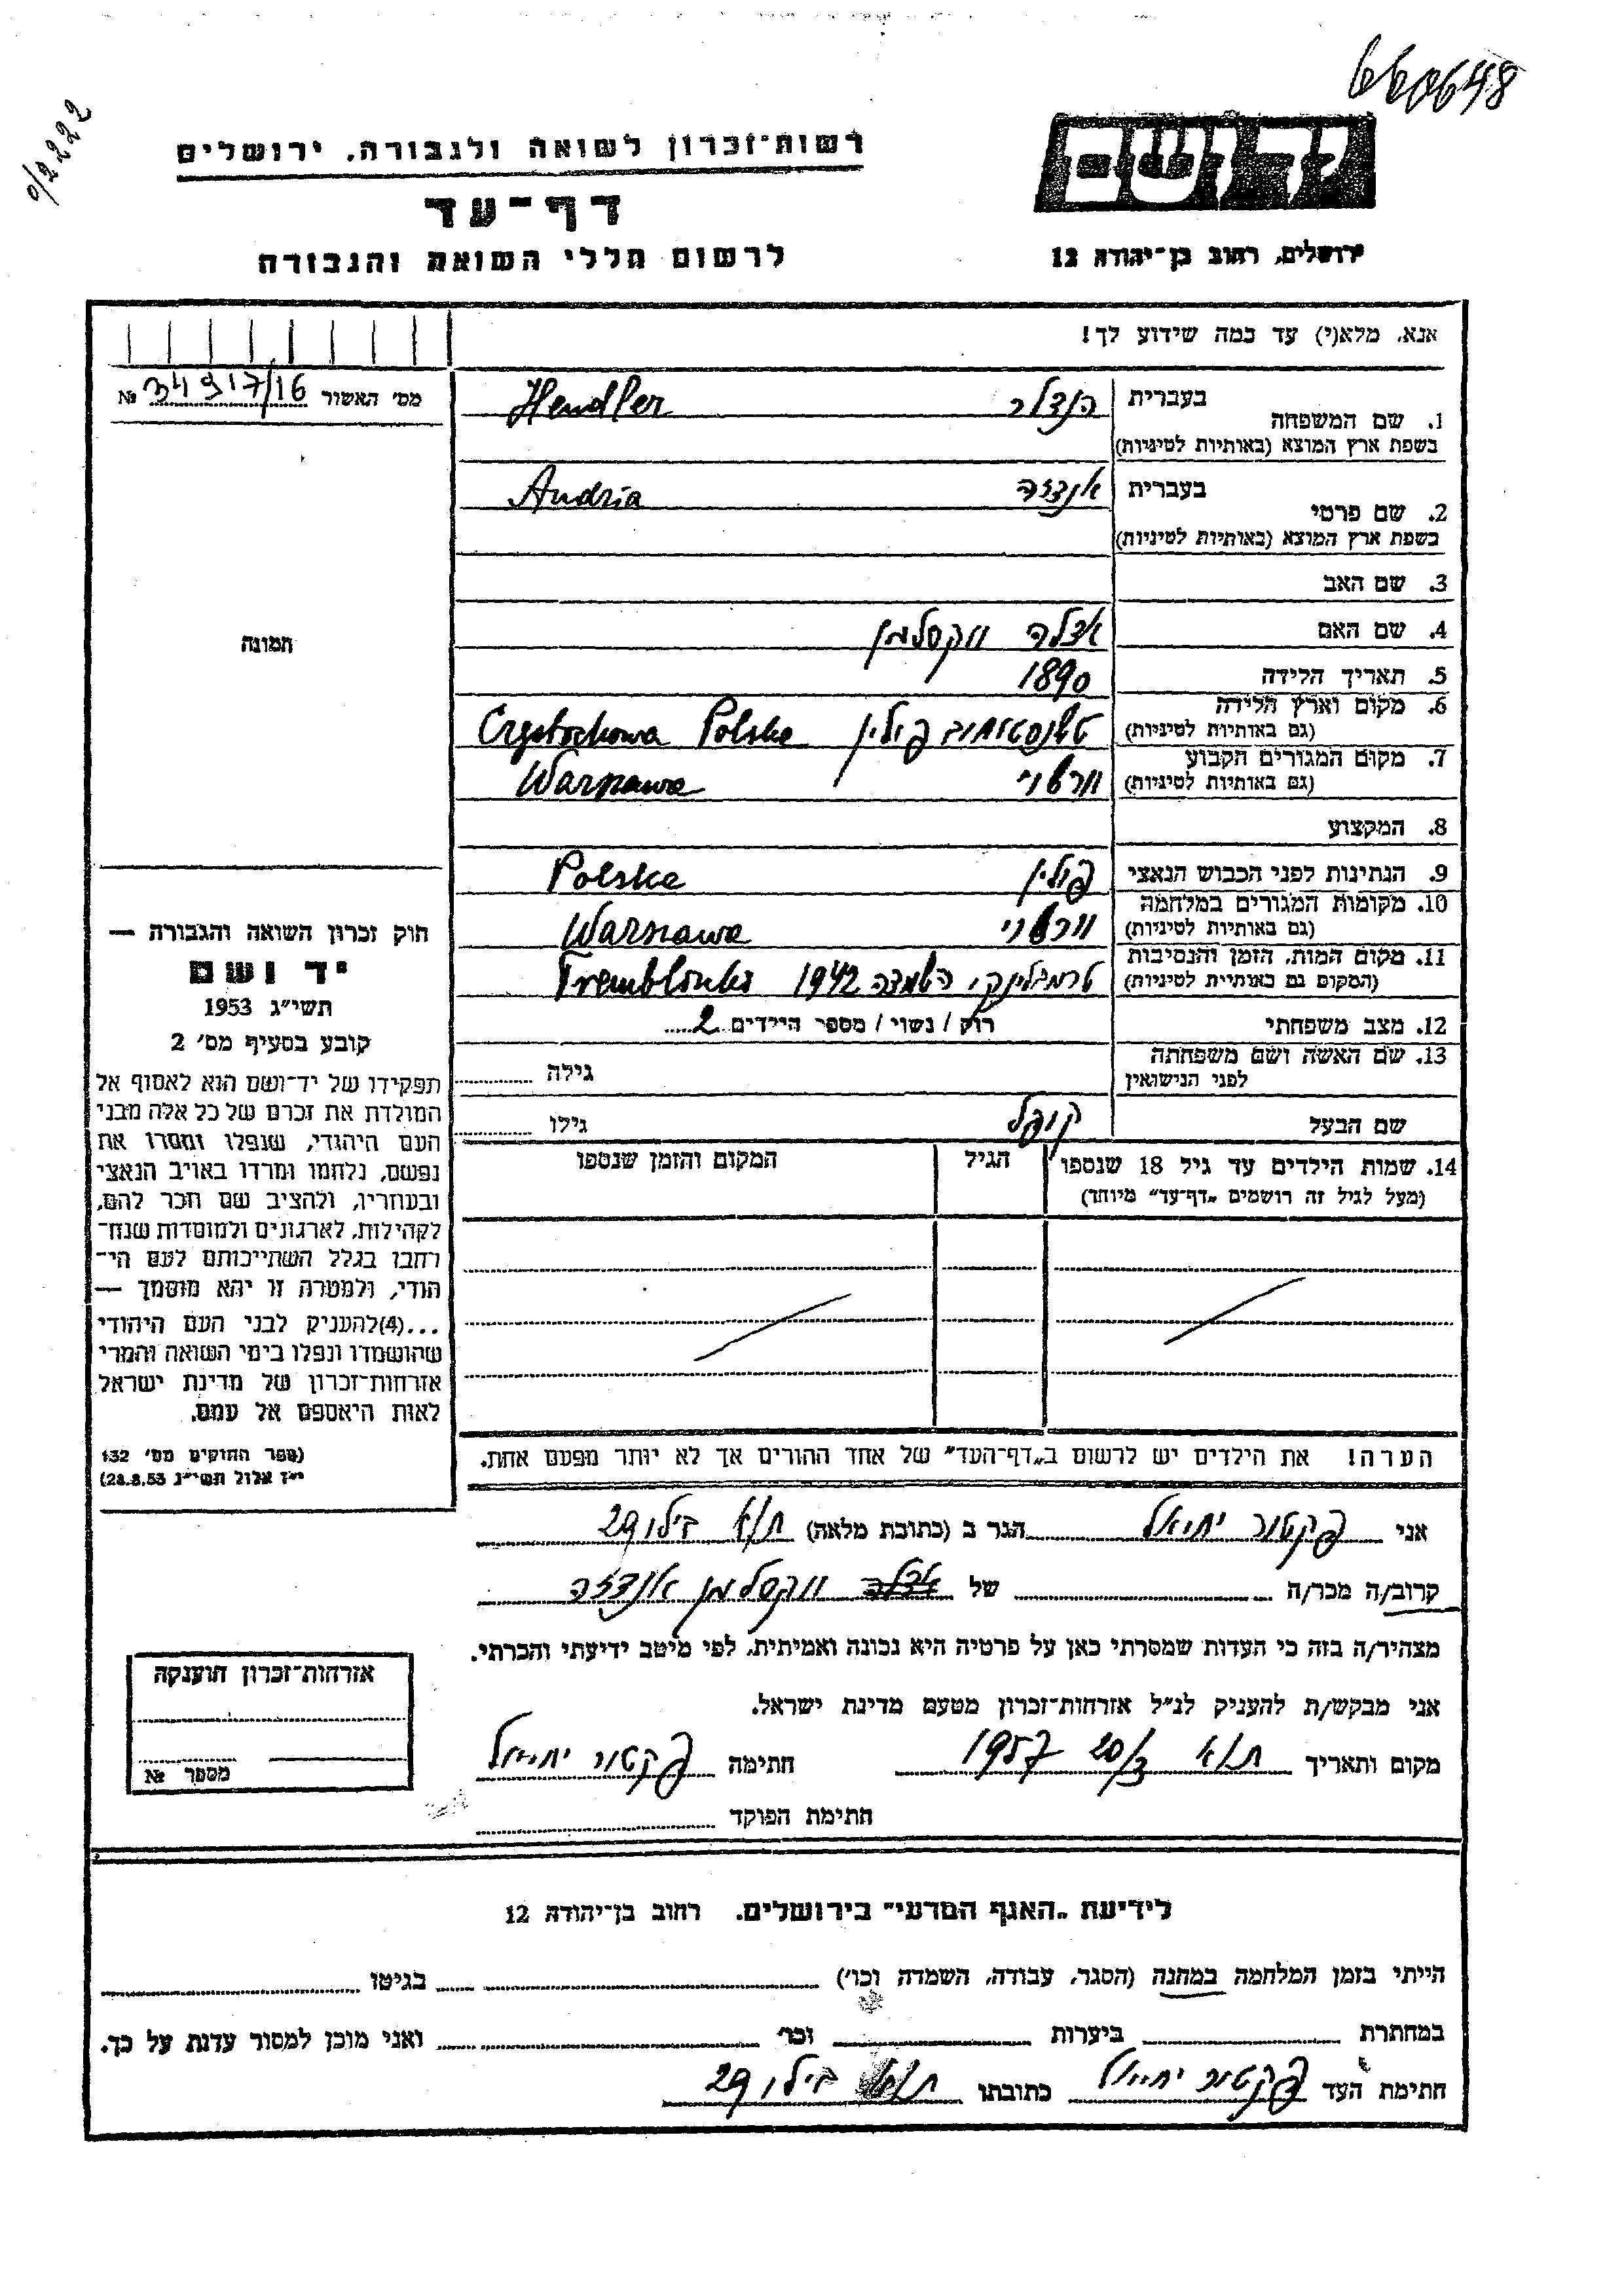 660648
0/2222
ידושם
ירושלים, רחוב בן־יהודה 12
רשות־זכרון לשואה ולגבורה, ירושלים
דף־עד
לרשום חללי השואה והגבורה
אנא, מלא(י) עד כמה שידוע לך!
מס' האשור № 34917/16
תמונה
1. שם המשפחה בעברית הנדלר Hendler
בשפת ארץ המוצא (באותיות לטיניות)
2. שם פרטי בעברית אנדזה Andzia
בשפת ארץ המוצא (באותיות לטיניות)
3. שם האב
4. שם האם אדלה ווקסלמן
5. תאריך הלידה 1890
6. מקום וארץ הלידה פולין Polska
(גם באותיות לטיניות)
7. מקום המגורים הקבוע ורשוי Warszawa
(גם באותיות לטיניות)
8. המקצוע
9. הנתינות לפני הכבוש הנאצי פולין Polska
10. מקומות המגורים במלחמה ורשוי Warszawa
(גם באותיות לטיניות)
11. מקום המות, הזמן והנסיבות טרמבלינקי, השמדה 1942 Tremblinka
(המקום גם באותיות לטיניות)
12. מצב משפחתי רוק / נשוי / מספר הילדים 2
13. שם האשה ושם משפחתה לפני הנישואין גילה
שם הבעל קופל גילו
14. שמות הילדים עד גיל 18 שנספו הגיל המקום והזמן שנספו
(מעל לגיל זה רושמים "דף־עד" מיוחד)
הערה! את הילדים יש לרשום ב"דף־העד" של אחד ההורים אך לא יותר מפעם אחת.
חוק זכרון השואה והגבורה —
יד ושם
תשי"ג 1953
קובע בסעיף מס' 2
תפקידו של יד־ושם הוא לאסוף אל
המולדת את זכרם של כל אלה מבני
העם היהודי, שנפלו ומסרו את
נפשם, נלחמו ומרדו באויב הנאצי
ובעוזריו, ולהציב שם וזכר להם,
לקהילות, לארגונים ולמוסדות שנח־
רבו בגלל השתייכותם לעם הי־
הודי, ולמטרה זו יהא מוסמך —
...(4)להעניק לבני העם היהודי
שהושמדו ונפלו בימי השואה והמרי
אזרחות־זכרון של מדינת ישראל
לאות היאספם אל עמם.
(ספר החוקים מס' 132
י"ז אלול תשי"ג 28.8.53)
אני פקטור יחיאל הגר ב (כתובת מלאה) ת/א בילו 29
קרוב/ה מכר/ה של ווקסלמן אנדזה
מצהיר/ה בזה כי העדות שמסרתי כאן על פרטיה היא נכונה ואמיתית, לפי מיטב ידיעתי והכרתי.
אני מבקש/ת להעניק לנ"ל אזרחות־זכרון מטעם מדינת ישראל.
מקום ותאריך ת/א 20/3 1957 חתימה פקטור יחיאל
חתימת הפוקד
אזרחות־זכרון הוענקה
מספר №
לידיעת "האגף המדעי" בירושלים, רחוב בן־יהודה 12
הייתי בזמן המלחמה במחנה (הסגר, עבודה, השמדה וכו') בגיטו
במחתרת ביערות וכו' ואני מוכן למסור עדות על כך.
חתימת העד פקטור יחיאל כתובתו ת/א בילו 29